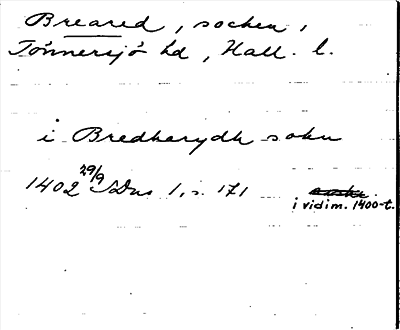 Breared, socken,
Tönnersjö hd, Hall. l.
i Bredherydh sokn
1402 29/9 SDns 1, s. 171
i vidim. 1400-t.